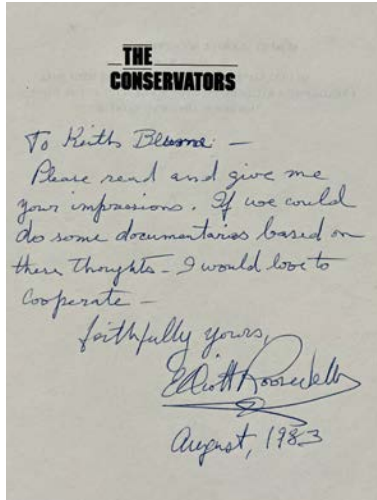 THE
CONSERVATORS
To Keith Blume —
Please read and give me
your impressions. If we could
do some documentaries based on
these thoughts - I would love to
cooperate —
faithfully yours,
Elliott Roosevelt
August, 1983